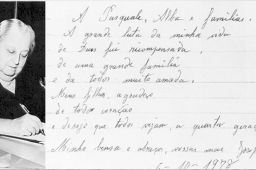 A Pasquale, Alba e familia.
A grande luta da minha vida
de Deus foi recompensada,
de uma grande familia
e da todos muito amada.
Meus filhos, agradeço
de todo coração
e desejo que todos vejam, a quarta geração
Minha bensa e abraço, vossa mãe
6-10-1978